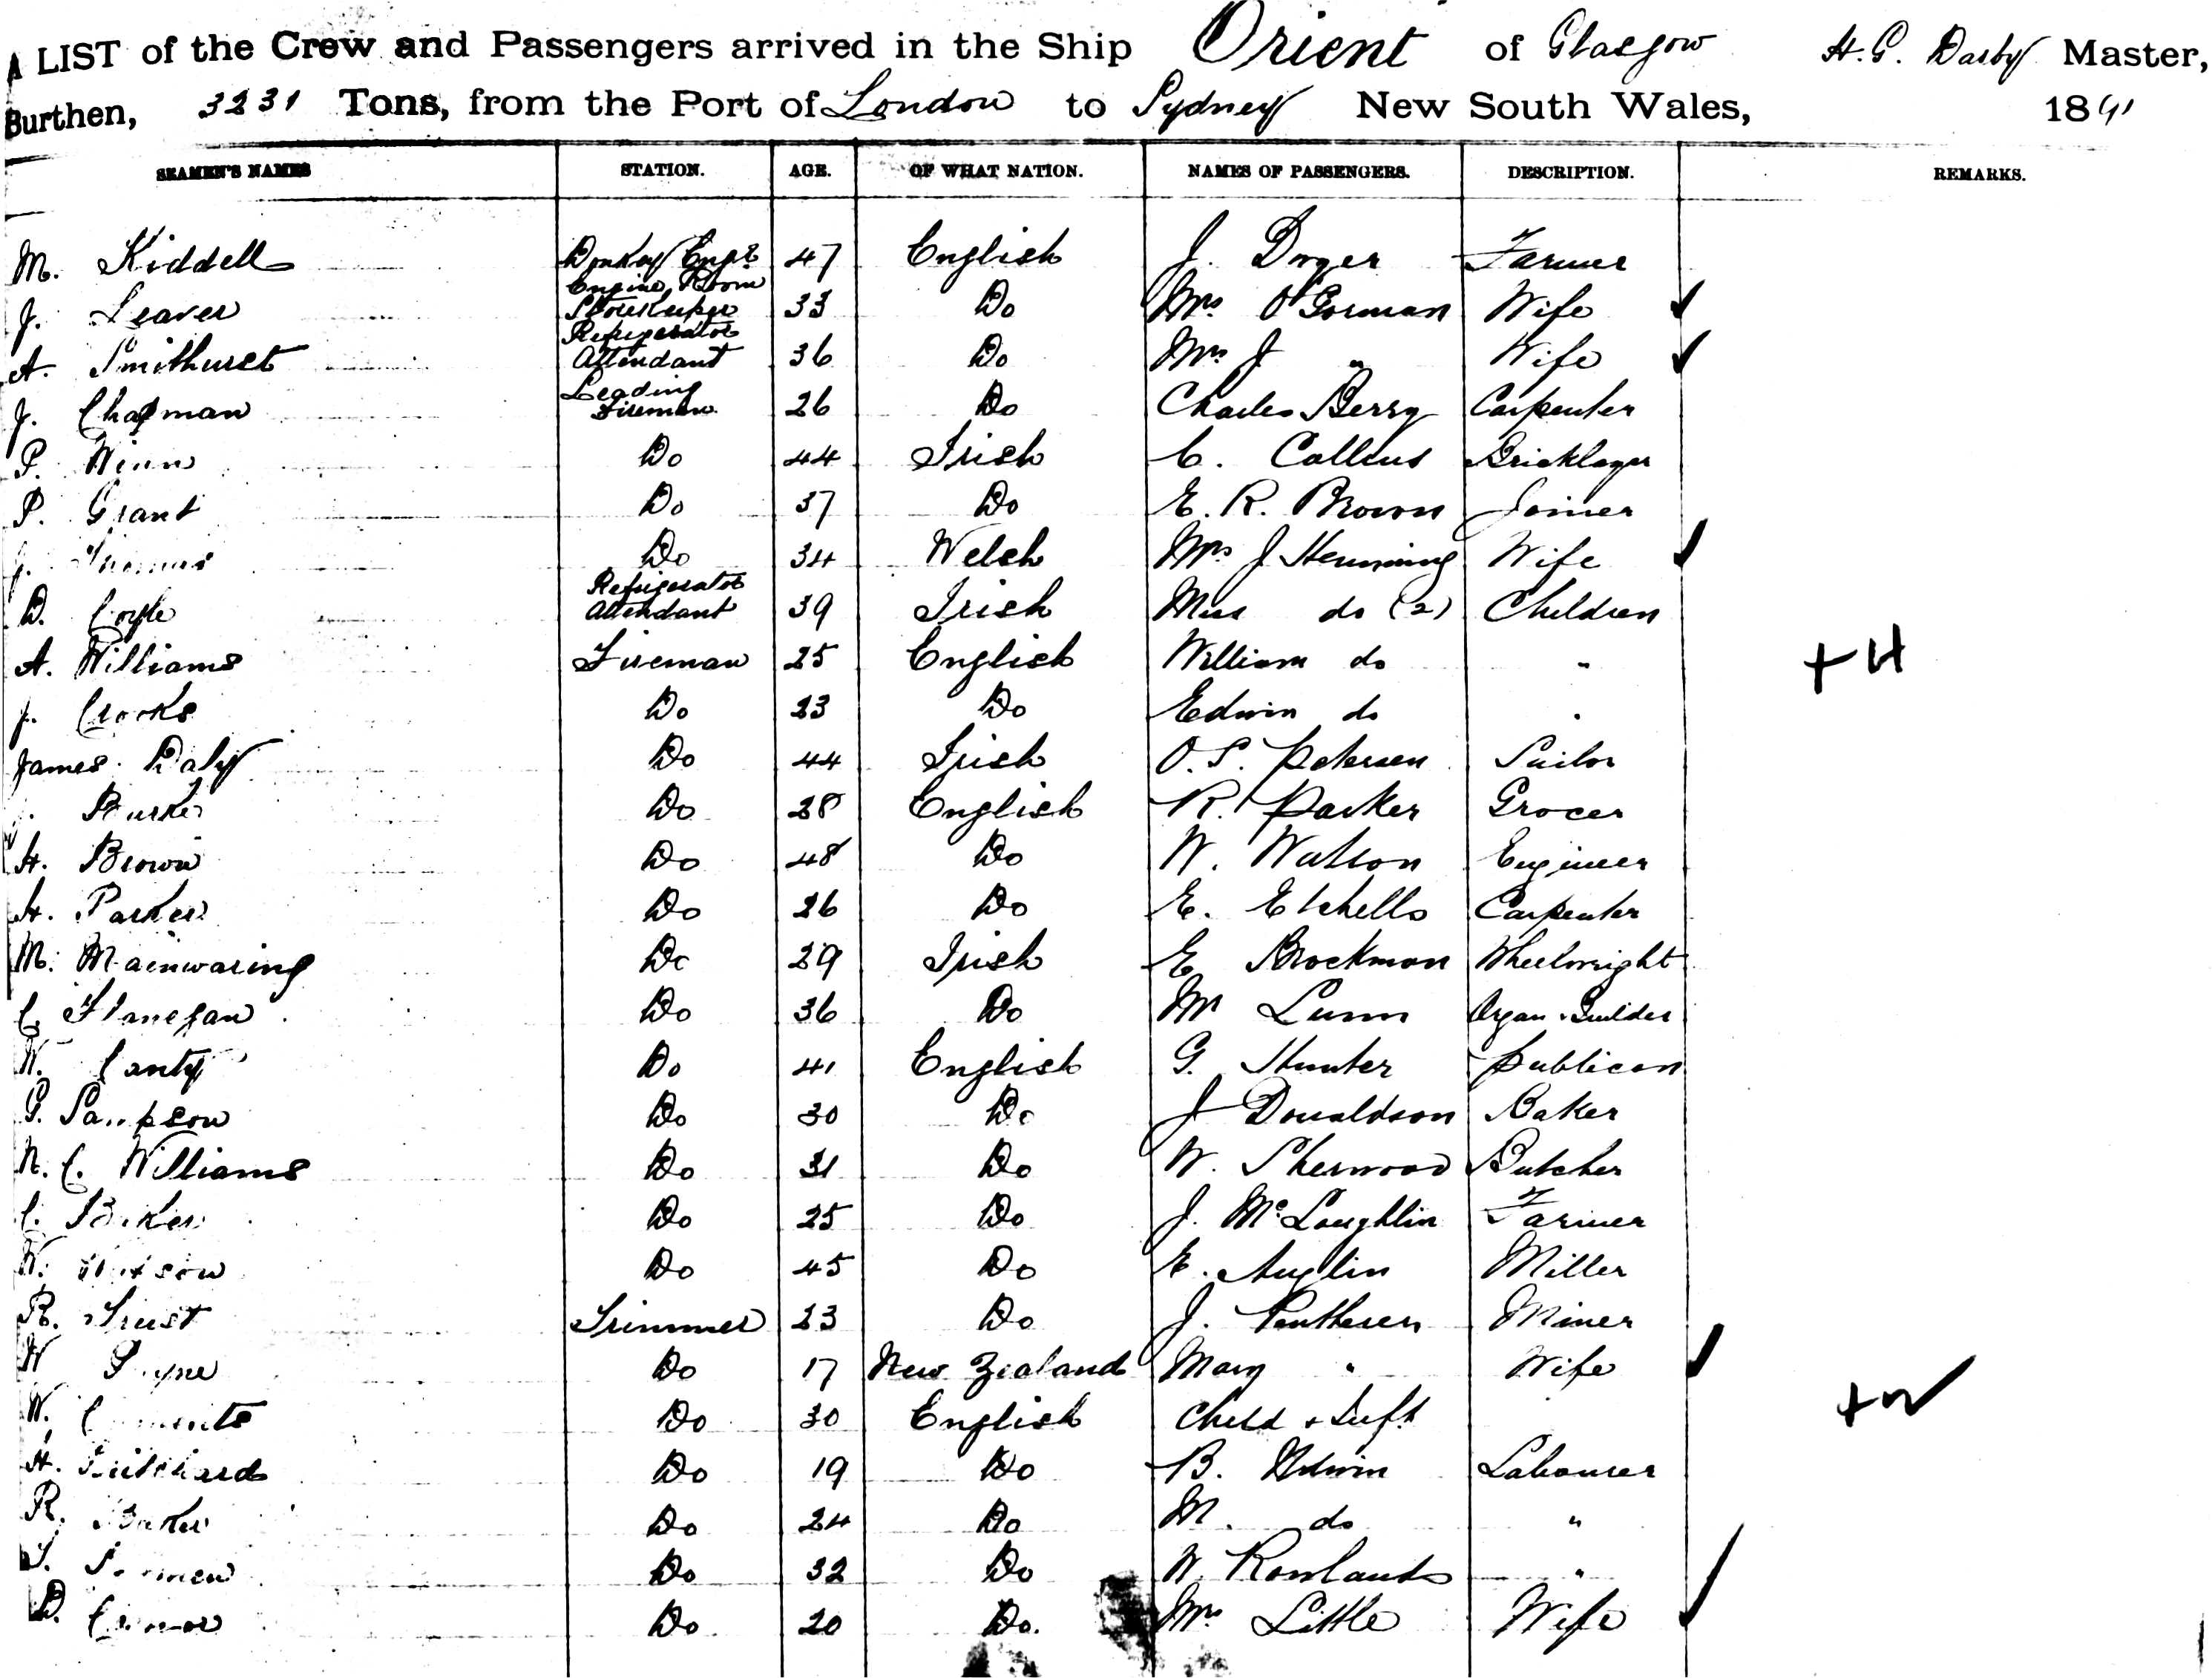 A LIST of the Crew and Passengers arrived in the Ship Orient of Glasgow H. G. Darby Master,
Burthen, 3231 Tons, from the Port of London to Sydney New South Wales, 1891
SEAMEN'S NAMES STATION. AGE. OF WHAT NATION. NAMES OF PASSENGERS. DESCRIPTION. REMARKS.
M. Kiddell Donkey Engr 47 English J. Dwyer Farmer
J. Leaver Engine Room Storekeeper 33 Do Mrs O'Gorman Wife
A. Smithurst Refrigerator Attendant 36 Do Mrs J " Wife
J. Chapman Leading Fireman 26 Do Charles Berry Carpenter
P. Winn Do 44 Irish C. Collins Bricklayer
P. Grant Do 37 Do E. R. Brown Joiner
J. Thomas Do 34 Welsh Mrs J Hemming Wife
D. Coyle Refrigerator Attendant 39 Irish Miss do (2) Children
A. Williams Fireman 25 English William do " + H
J. Crooks Do 23 Do Edwin do "
James Daly Do 44 Irish O. S. Petersen Sailor
Burke Do 28 English R. Parker Grocer
H. Brown Do 48 Do W. Watson Engineer
H. Parker Do 26 Do E. Etchells Carpenter
M. Mainwaring Do 29 Irish E Brockman Wheelwright
C. Flanegan Do 36 Do Mr Lunn Organ Builder
W. Canty Do 41 English G. Hunter Publican
G. Sampson Do 30 Do J Donaldson Baker
N. C. Williams Do 31 Do W. Sherwood Butcher
C. Baker Do 25 Do J. McLoughlin Farmer
W. Do 45 Do E. Anglin Miller
R. Trust Trimmer 23 Do J. Miner
W Payne Do 17 New Zealand Mary " Wife
W. Do 30 English Child + Inft + W
H. Pritchard Do 19 Do B. Edwin Labourer
R. Baker Do 24 Do M. do "
Do 32 Do W. Rowlands "
D. Connor Do 20 Do. Mrs Little Wife